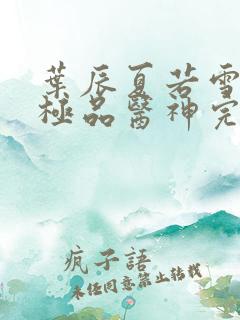 葉辰夏若雪
極品醫神完
瘋子語
未任同意禁止轉載